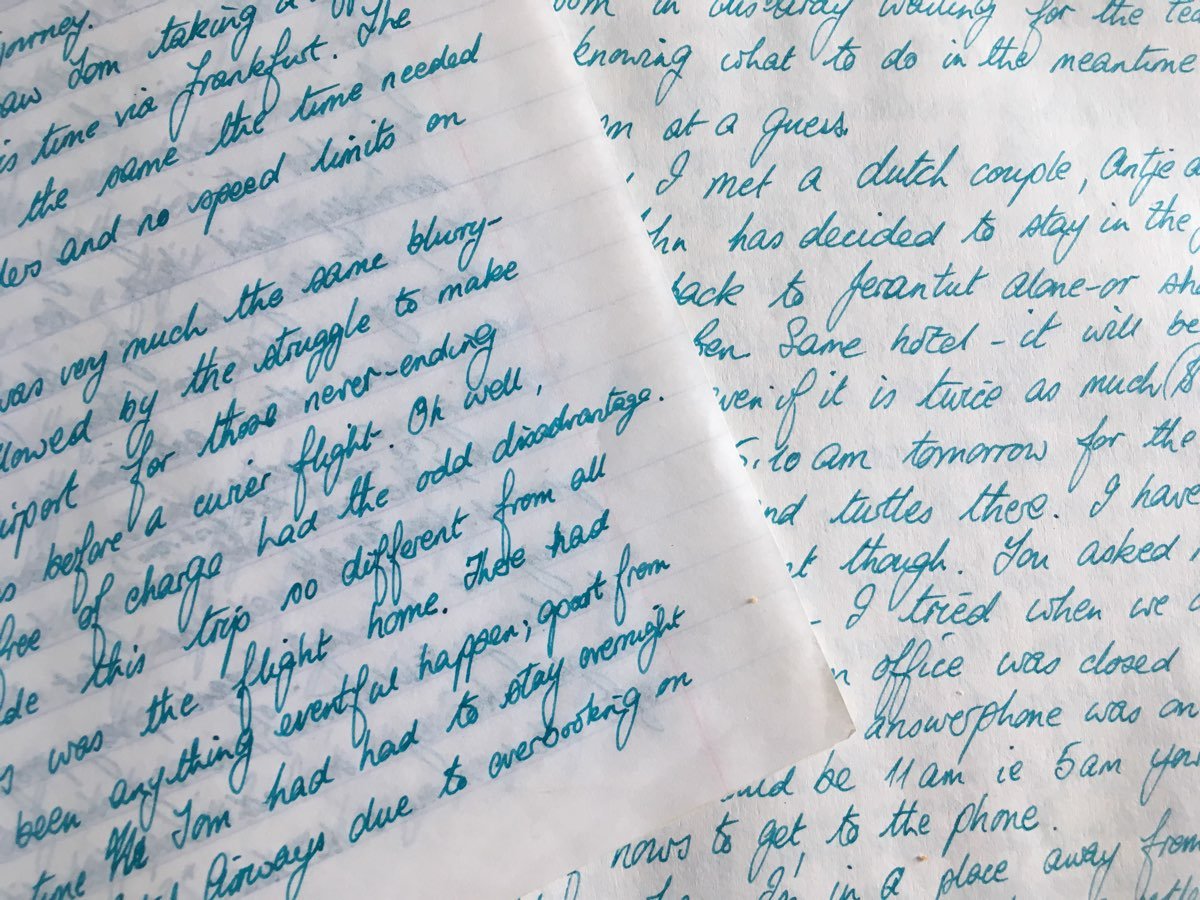 journey.
saw Tom taking a
is time via Frankfurt. The
the same the time needed
ders and no speed limits on
was very much the same blurry-
llowed by the struggle to make
irport for those never-ending
s before a curier flight. Oh well,
free of charge had the odd disadvantage.
de this trip so different from all
s was the flight home. There had
been anything eventful happen; apart from
time Tom had had to stay overnight
Airways due to overbooking on
om in disarray waiting for the tea
knowing what to do in the meantime
m at a guess.
I met a dutch couple, Antje a
hn has decided to stay in the
back to Jerantut alone-or sh
en Same hotel - it will be
ven if it is twice as much (
5.10 am tomorrow for the
nd turtles there. I have
t though. You asked
- I tried when we
n office was closed
answerphone was on
uld be 11 am ie 5am you
nows to get to the phone.
in a place away from